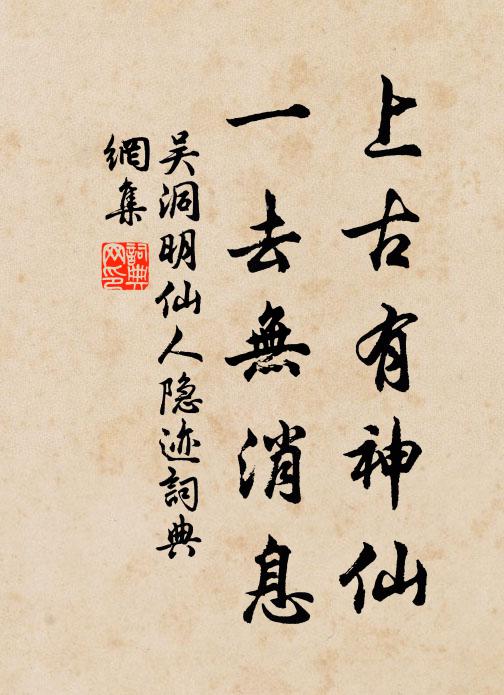 上古有神仙
一去無消息
吴洞明仙人隐迹詞典
網集
詞典
网印